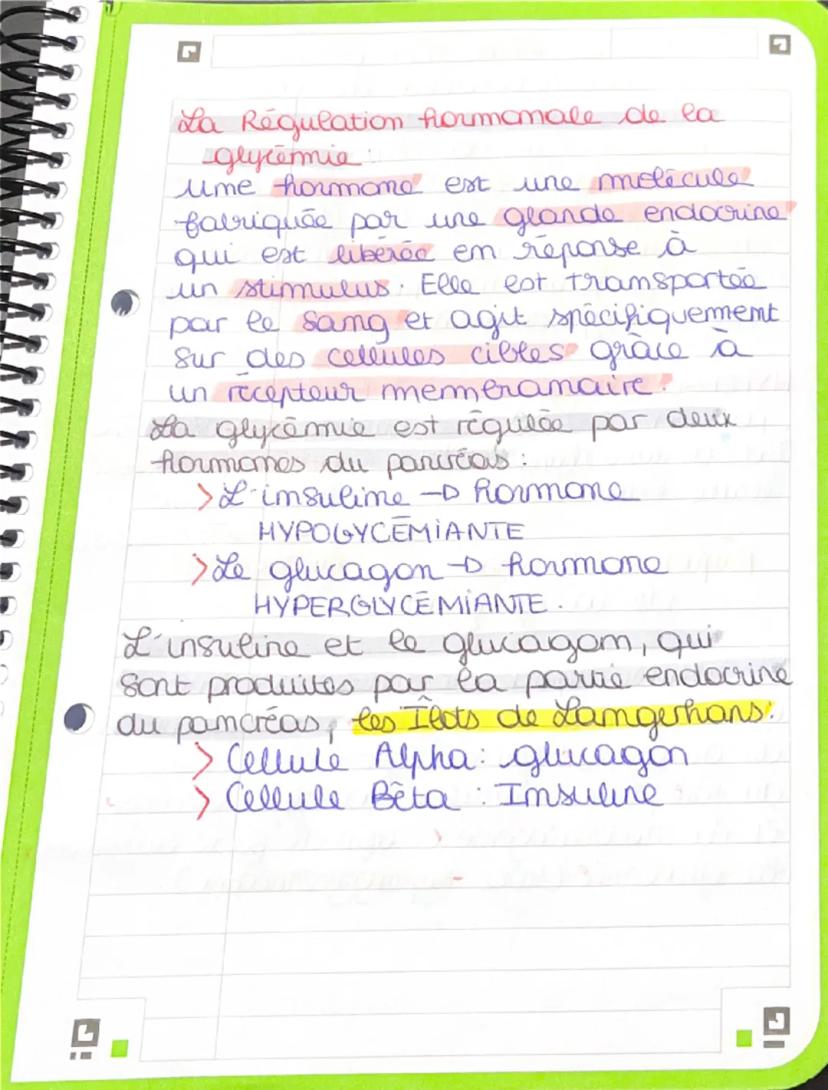 La Régulation hormonale de la
glycémie :
Une hormone est une molécule
fabriquée par une glande endocrine
qui est libérée en réponse à
un stimulus. Elle est transportée
par le sang et agit spécifiquement
sur des cellules cibles grâce à
un récepteur membranaire.
La glycémie est régulée par deux
hormones du pancréas :
> L'insuline → hormone
HYPOGYCÉMIANTE
> Le glucagon → hormone
HYPERGLYCÉMIANTE.
L'insuline et le glucagon, qui
sont produites par la partie endocrine
du pancréas, les Îlots de Langerhans :
> Cellule Alpha : glucagon
> Cellule Bêta : Insuline